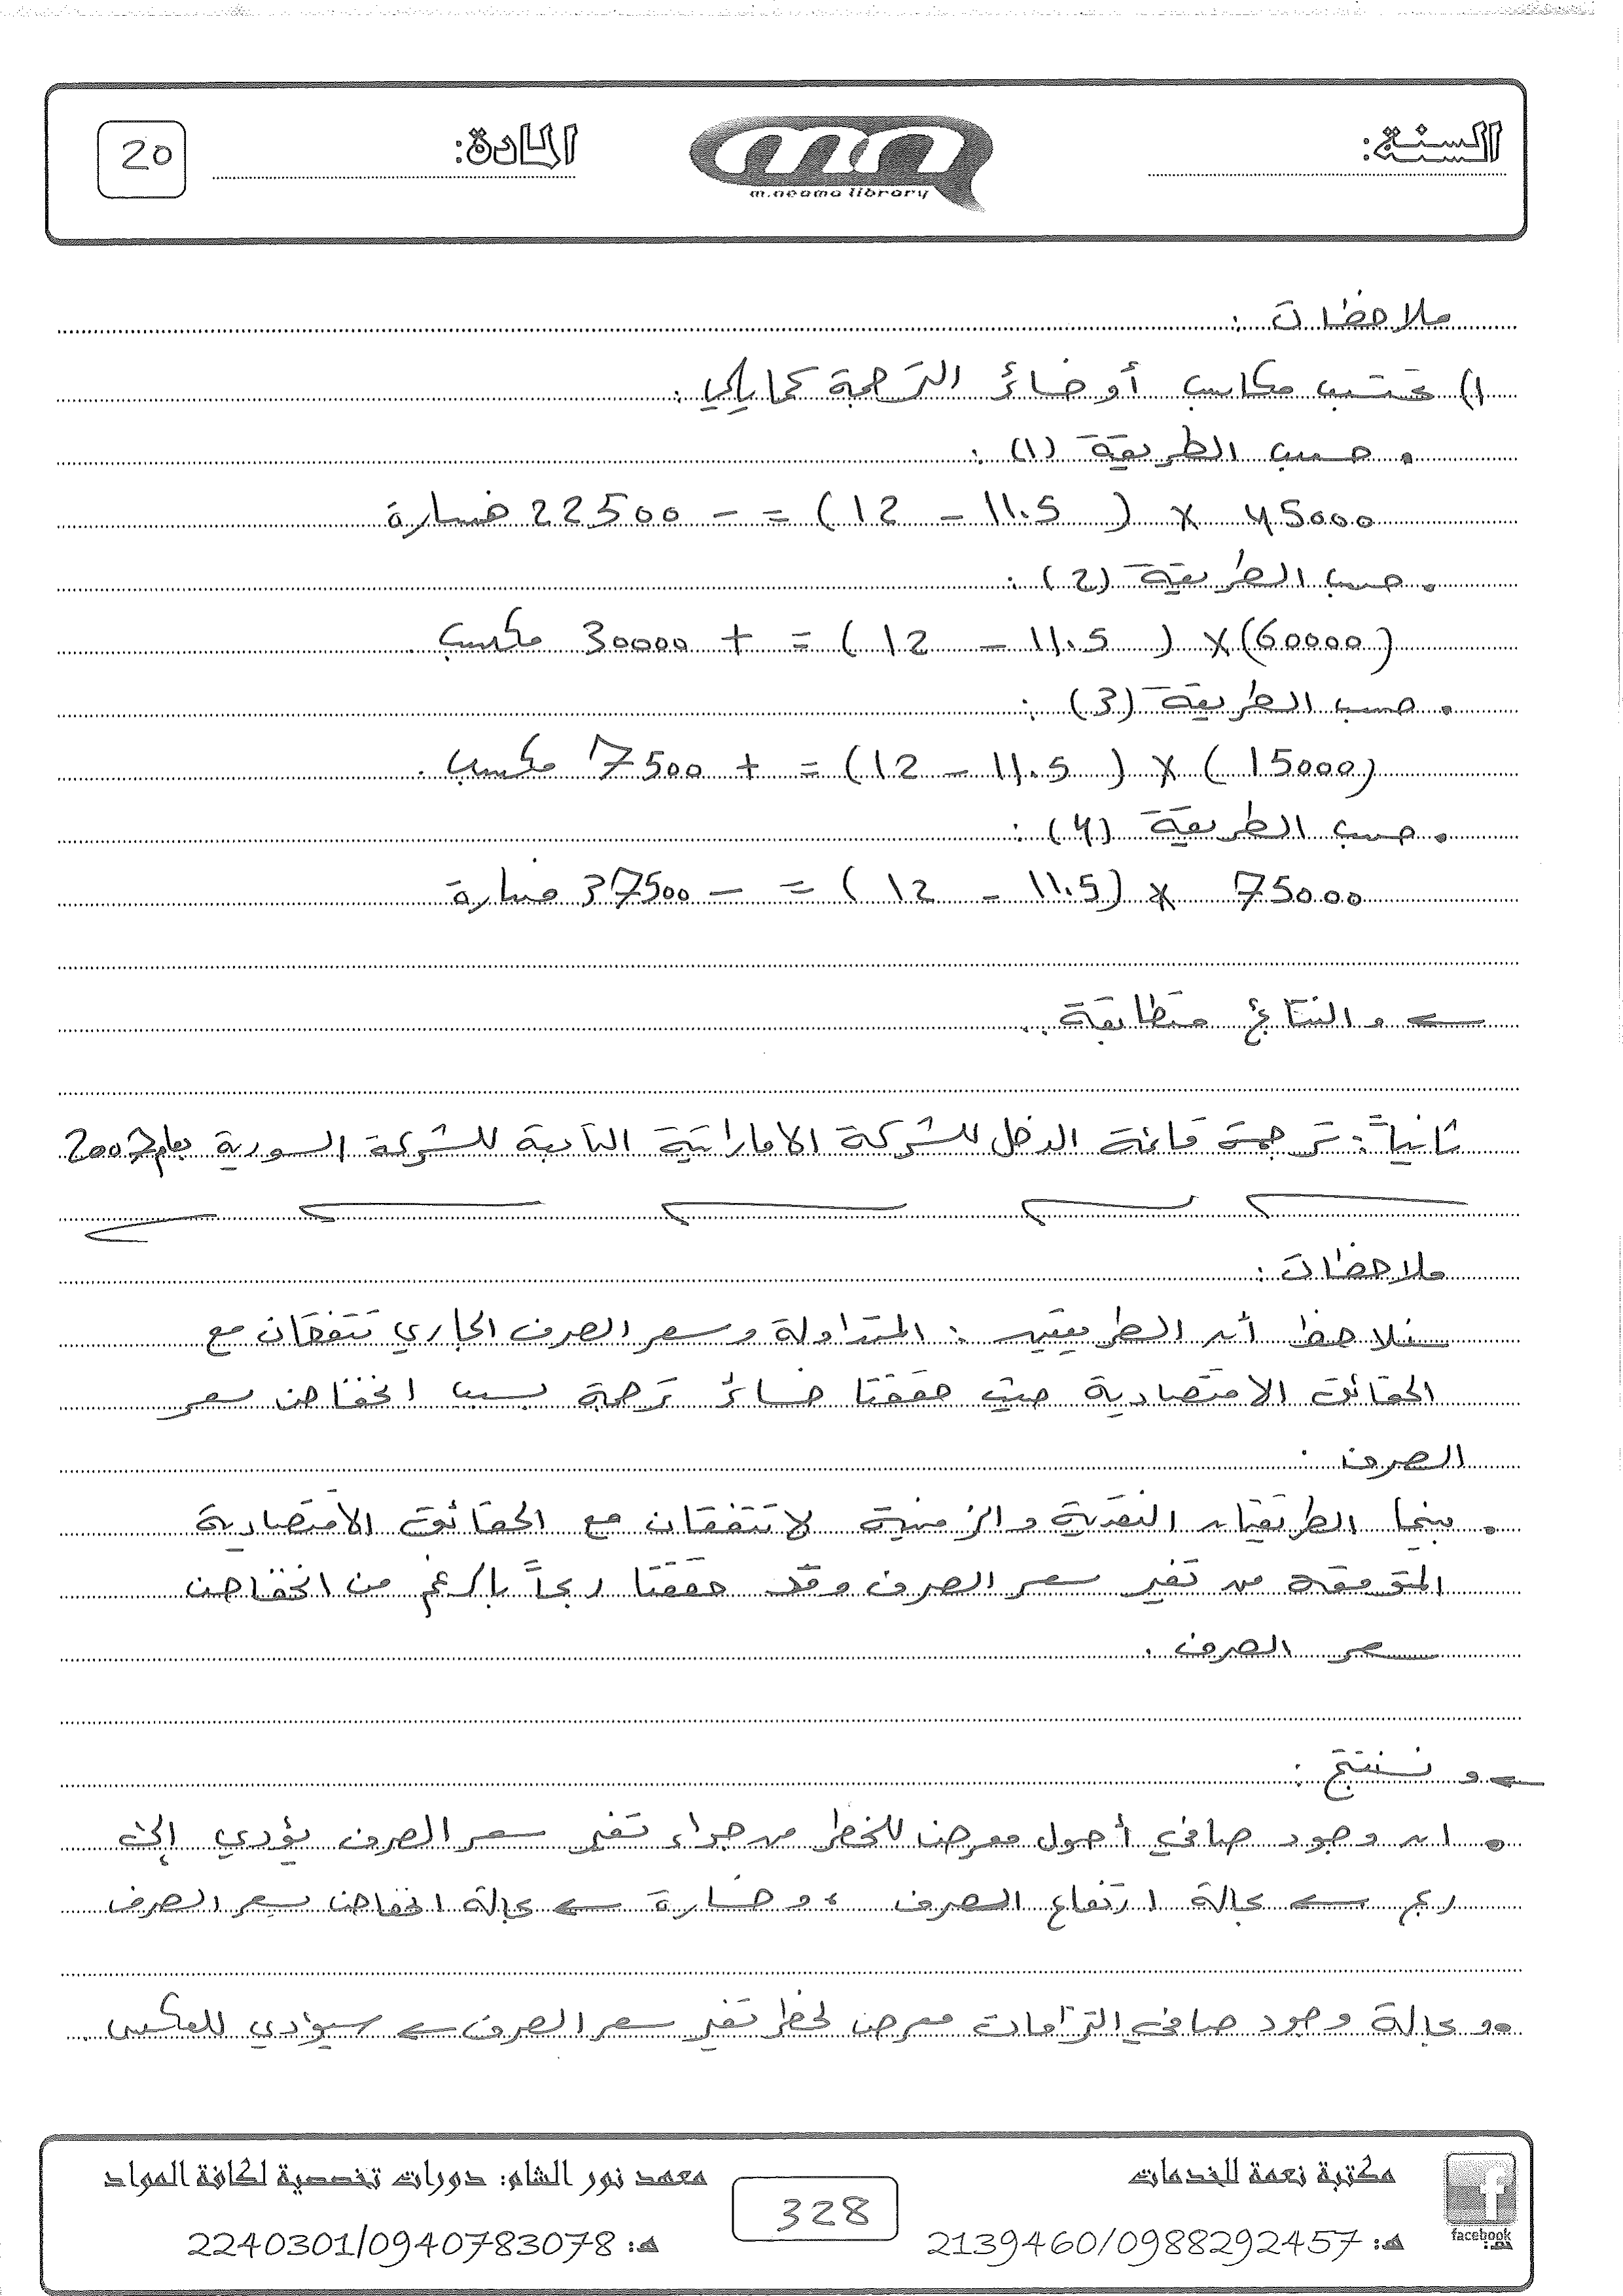 السنة:
m.neama library
المادة:
20
ملاحظات :
1) تحتسب مكاسب أو خسائر الترجمة كما يلي :
• حسب الطريقة (1) :
45000 × (11.5 - 12) = - 22500 خسارة
• حسب الطريقة (2) :
(60000) × (11.5 - 12) = + 30000 مكسب .
• حسب الطريقة (3) :
(15000) × (11.5 - 12) = + 7500 مكسب .
• حسب الطريقة (4) :
75000 × (11.5 - 12) = - 37500 خسارة
← و النتائج متطابقة ..
ثانياً : ترجمة قائمة الدخل للشركة الاماراتية التابعة للشركة السورية بعام 2007
ملاحظات :
سنلاحظ أن الطريقتين : المتداولة وسعر الصرف الجاري تتفقان مع
الحقائق الاقتصادية حيث حققتا خسائر ترجمة بسبب انخفاض سعر
الصرف .
• بينما الطريقتان النقدية والزمنية لا تتفقان مع الحقائق الاقتصادية
المتوقعة من تغير سعر الصرف وقد حققتا ربحاً بالرغم من انخفاض
سعر الصرف .
← و نستنتج :
• ان وجود صافي أصول معرض للخطر من جراء تغير سعر الصرف يؤدي إلى
ربح ← بحالة ارتفاع الصرف ، و خسارة ← بحالة انخفاض سعر الصرف
•• و بحالة وجود صافي التزامات معرض لخطر تغير سعر الصرف ← سيؤدي للعكس .
facebook
مكتبة نعمة للخدمات
هـ: 2139460/0988292457
328
معهد نور الشام: دورات تخصصية لكافة المواد
هـ: 2240301/0940783078